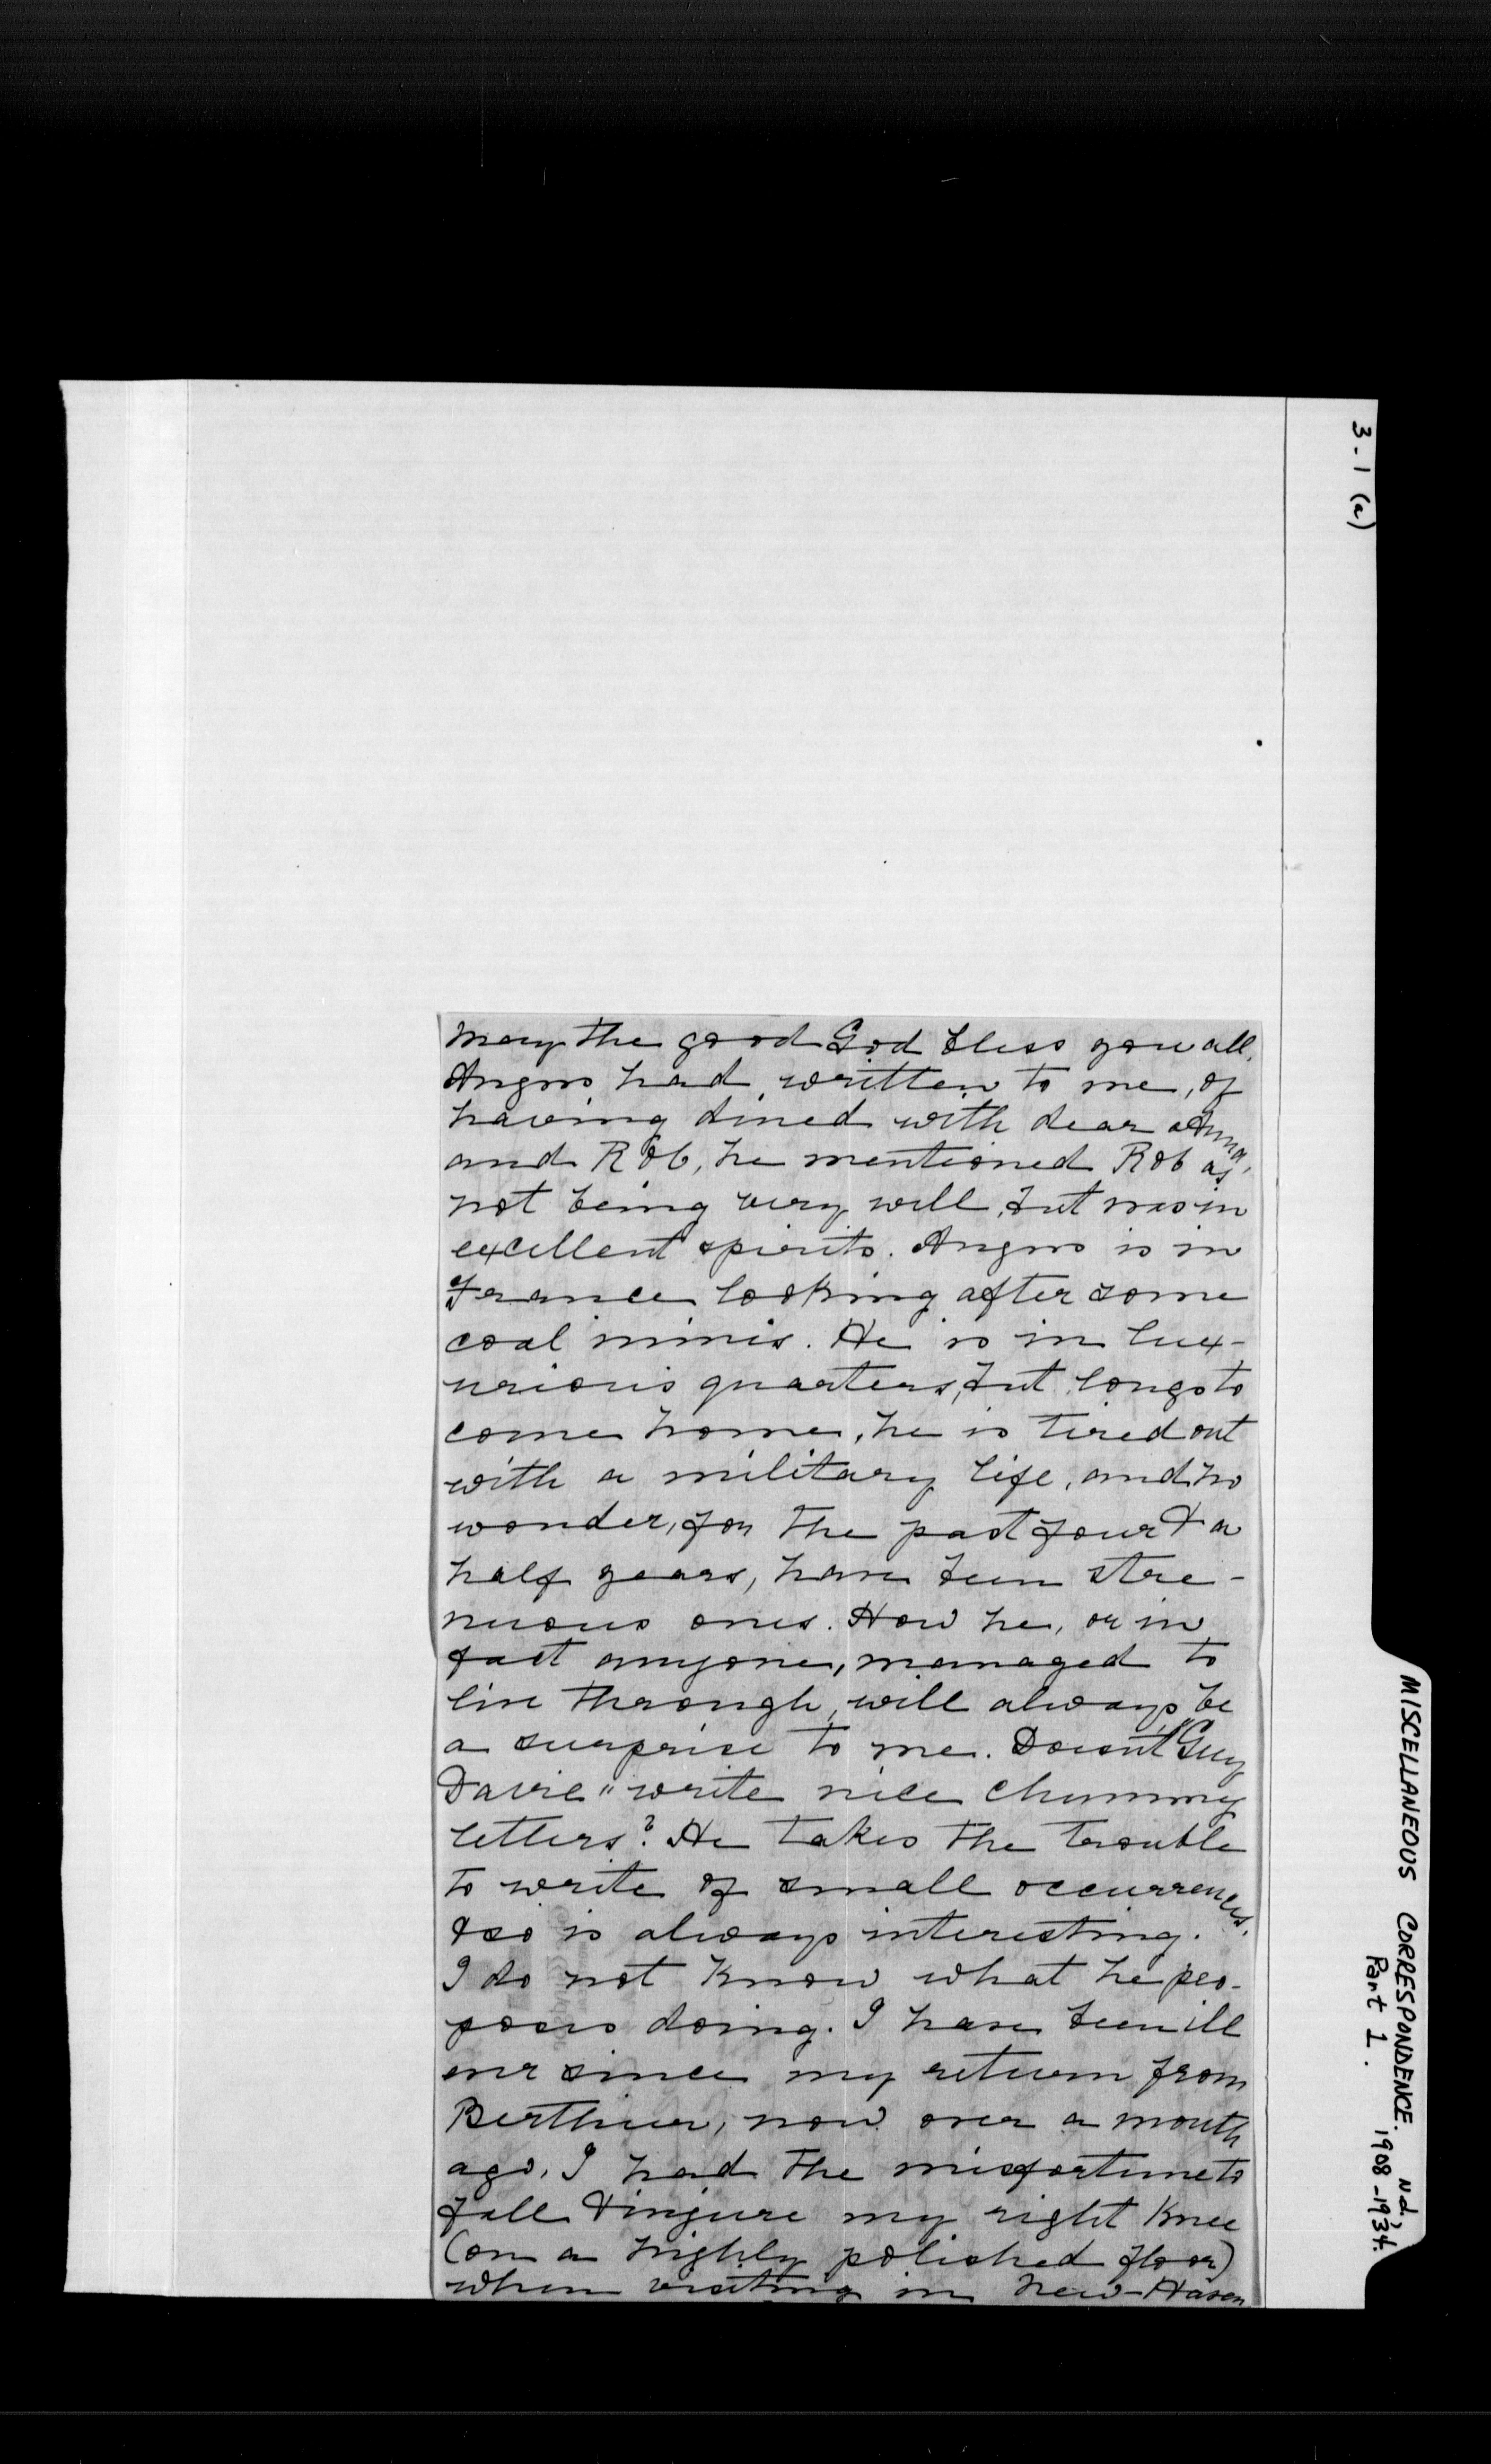 3-1 (a)
MISCELLANEOUS CORRESPONDENCE. N.d., 1908-1934.
Part 1.
May the good God bless you all.
Angus had written to me, of
having dined with dear Anna,
and Rob, he mentioned Rob as
not being very well, but was in
excellent spirits. Angus is in
France looking after some
coal mines. He is in lux-
urious quarters, but longs to
come home, he is tired out
with a military life, and no
wonder, for the past four & a
half years, have been stre-
nuous ones. How he, or in
fact anyone, managed to
live through, will always be
a surprise to me. Doesn't "Guy
Davie" write nice chummy
letters? He takes the trouble
to write of small occurrences,
& so is always interesting.
I do not know what he pro-
poses doing. I have been ill
ever since my return from
Berthier, now over a month
ago, I had the misfortune to
fall & injure my right knee
(on a highly polished floor)
when visiting in New-Haven